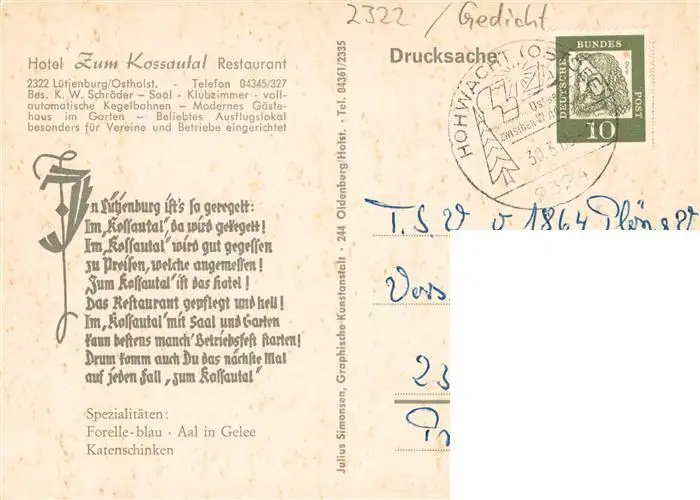 2322 / Gedicht
Hotel Zum Kossautal Restaurant
2322 Lütjenburg/Ostholst. - Telefon 04345/327
Bes. K. W. Schröder — Saal - Klubzimmer - voll-
automatische Kegelbahnen — Modernes Gäste-
haus im Garten — Beliebtes Ausflugslokal
besonders für Vereine und Betriebe eingerichtet
In Lütjenburg ist's so geregelt:
Im „Kossautal“, da wird gekegelt!
Im „Kossautal“ wird gut gegessen
zu Preisen, welche angemessen!
„Zum Kossautal“ ist das Hotel!
Das Restaurant gepflegt und hell!
Im „Kossautal“ mit Saal und Garten
kann bestens manch' Betriebsfest starten!
Drum komm auch Du das nächste Mal
auf jeden Fall „zum Kossautal“
Spezialitäten:
Forelle-blau - Aal in Gelee
Katenschinken
Julius Simonsen, Graphische Kunstanstalt - 244 Oldenburg/Holst. - Tel. 04361/2335
Drucksache
HOHWACHT (OSTSEE)
zwischen
30.3.
2324
DEUTSCHE BUNDESPOST
10
T. S. V. v 1864 Plön
Vors
23